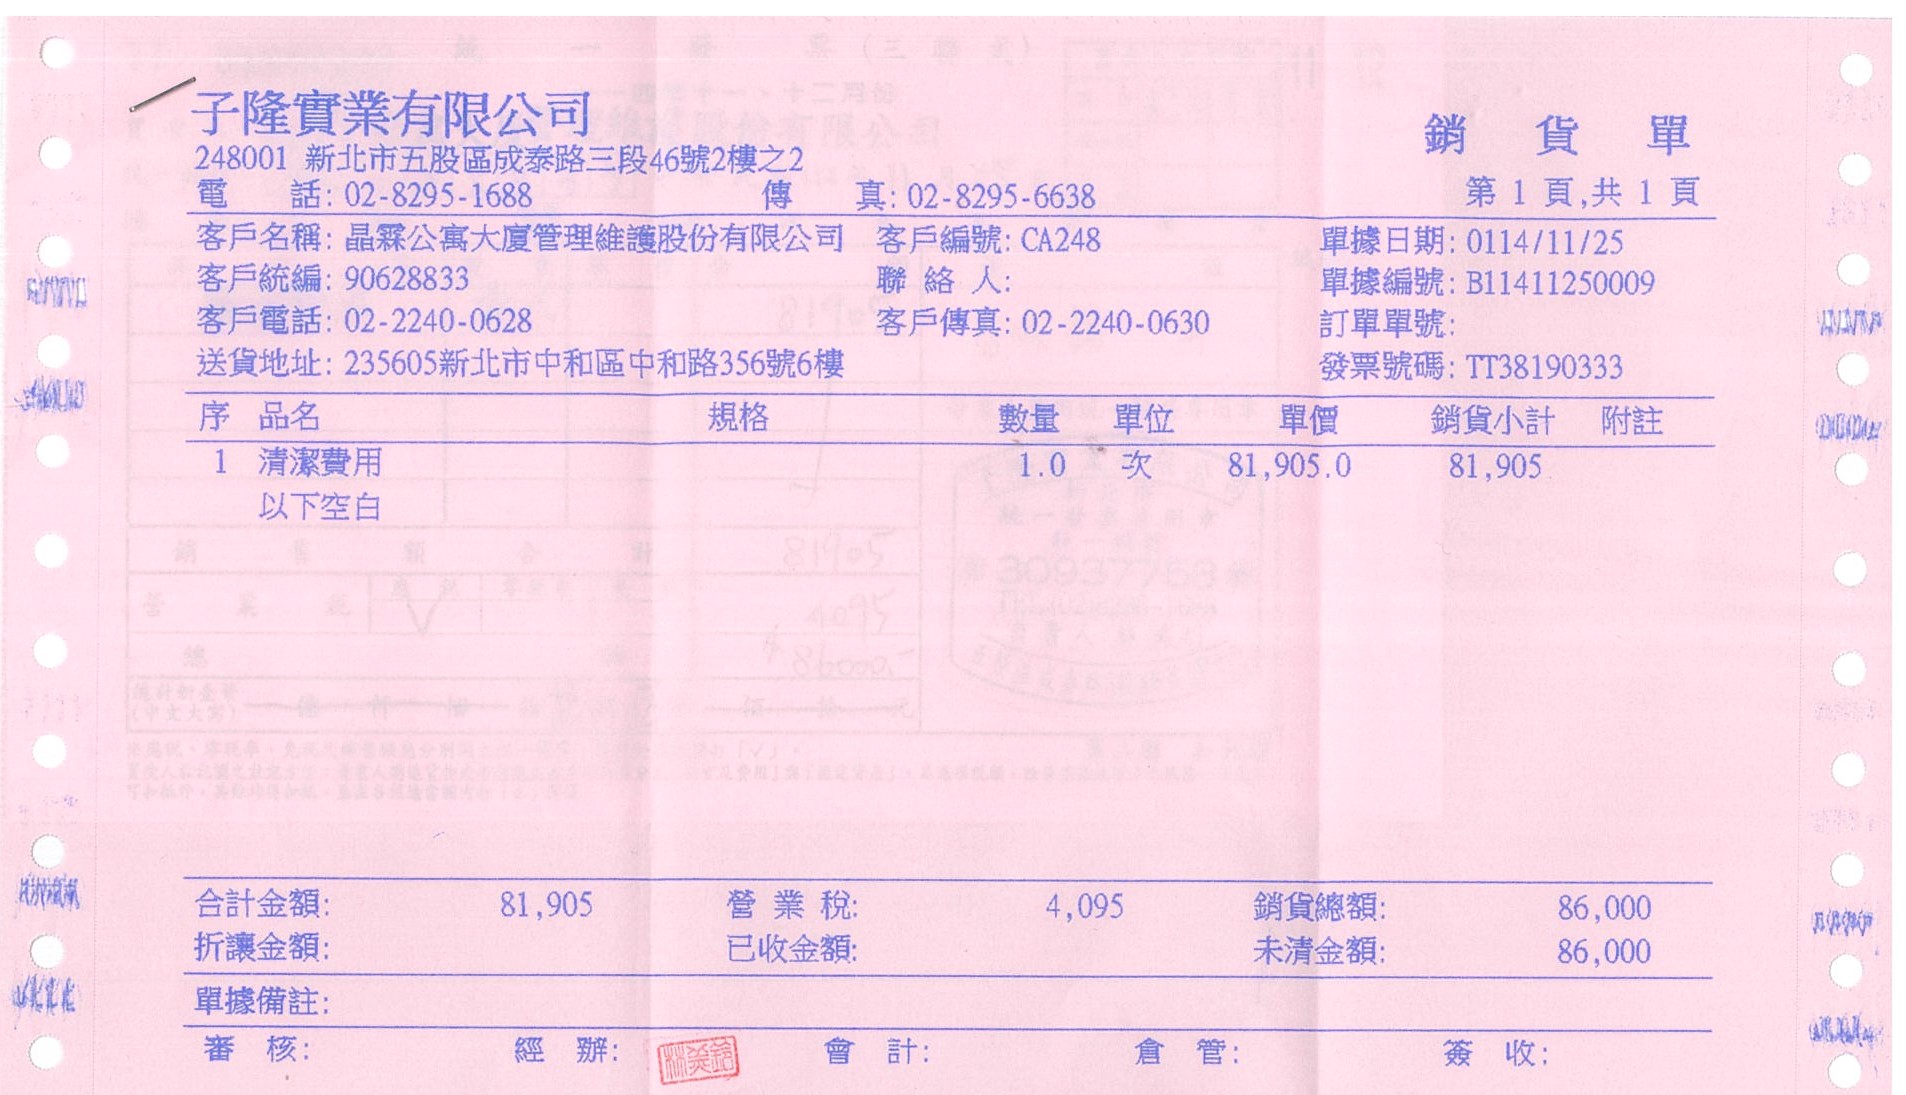 子隆實業有限公司
銷 貨 單
248001 新北市五股區成泰路三段46號2樓之2
電 話: 02-8295-1688 傳 真: 02-8295-6638 第 1 頁,共 1 頁
客戶名稱: 晶霖公寓大廈管理維護股份有限公司 客戶編號: CA248 單據日期: 0114/11/25
客戶統編: 90628833 聯 絡 人: 單據編號: B11411250009
客戶電話: 02-2240-0628 客戶傳真: 02-2240-0630 訂單單號:
送貨地址: 235605新北市中和區中和路356號6樓 發票號碼: TT38190333
序 品名 規格 數量 單位 單價 銷貨小計 附註
1 清潔費用 1.0 次 81,905.0 81,905
以下空白
合計金額: 81,905 營 業 稅: 4,095 銷貨總額: 86,000
折讓金額: 已收金額: 未清金額: 86,000
單據備註:
審 核: 經 辦: 會 計: 倉 管: 簽 收: